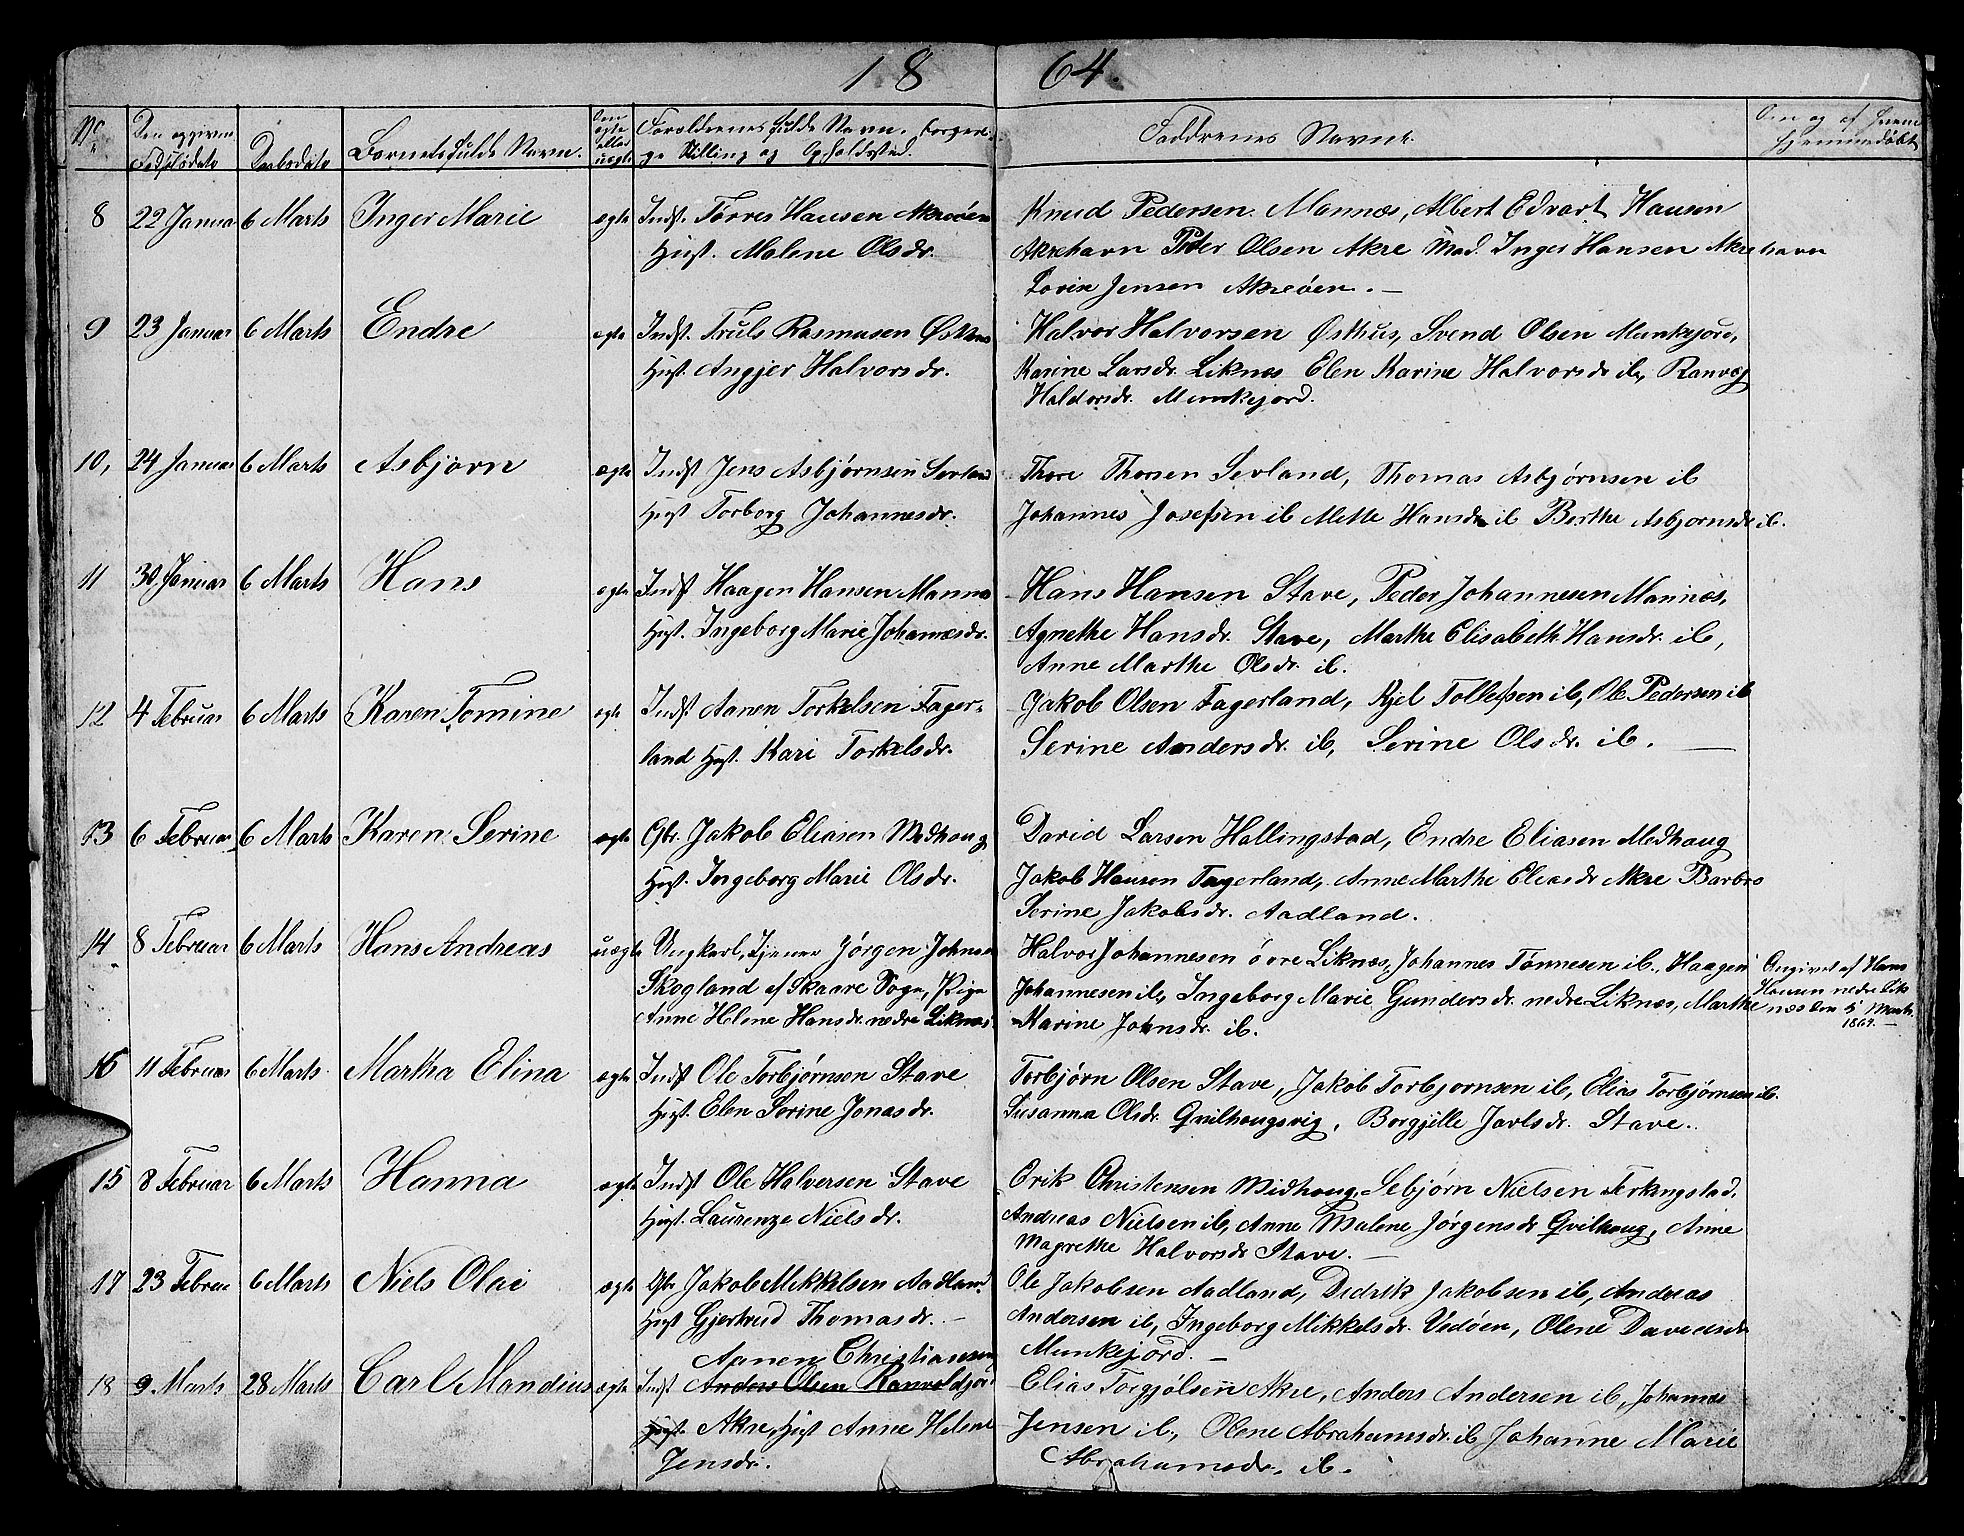 18 64.
No. Den opgivne Fødselsdato Daabsdato Barnets fulde Navn. Om ægte eller uægte Forældrenes fulde Navn, borgerlige Stilling og Opholdssted. Faddrenes Navne.
8 22 Januar 6 Marts Inger Marie ægte Indst. Tørres Hansen Akreøen Knud Pedersen Mannæs, Albert Edvart Hansen
Hust. Malene Olsdr. Akrehavn Peder Olsen Akre Mad. Inger Hansen Akrehavn
Jensen Akreøen. —
9 23 Januar 6 Marts Endre ægte Indst. Truls Rasmusen Østhus Halvor Halvorsen Østhus, Svend Olsen Munkejord,
Hust. Angjer Halvorsdr. Karine Larsdr. Liknæs Elen Karine Halvorsdr ib, Ranveg
Haldorsdr. Munkejord.
10, 24 Januar 6 Marts Asbjørn ægte Indst Jens Asbjørnsen Sevland Thore Thorsen Sevland, Thomas Asbjørnsen ib
Hust Torborg Johannesdr. Johannes Josefsen ib Mette Hansdr ib Berthe Asbjornsdr ib.
11 30 Januar 6 Marts Hans ægte Indst Haagen Hansen Mannæs Hans Hansen Stave, Peder Johannesen Mannæs,
Hust. Ingeborg Marie Johanesdr. Agnethe Hansdr. Stave, Marthe Elisabeth Hansdr. ib,
Anne Marthe Olsdr. ib.
12 4 Februar 6 Marts Karen Tomine ægte Indst. Aanen Torkelsen Fager- Jakob Olsen Fagerland, Kjel Tollefsen ib, Ole Pedersen ib
land Hust. Kari Torkelsdr. Serine Andersdr. ib, Serine Olsdr. ib. —
13 6 Februar 6 Marts Karen Serine ægte Gbr. Jakob Eliasen Medhaug David Larsen Hallingstad, Endre Eliasen Medhaug
Hust. Ingeborg Marie Olsdr. Jakob Hansen Fagerland, Anne Marthe Eliasdr Akre Barbro
Serine Jakobsdr. Aadland.
14 8 Februar 6 Marts Hans Andreas uægte Ungkarl, Tjener Jørgen Johnsen Halvor Johannesen øvre Liknæs, Johannes Tønnesen ib., Haagen Angivet af Hans
Skogland af Skaare Sogn, Pige Johannesen ib, Ingeborg Marie Gundersdr. nedre Liknæs, Marthe Hansen nedre Lik
Anne Helene Hansdr. nedre Liknæs. Karine Johnsdr. ib. næs den 5 Marts
1864. —
16 11 Februar 6 Marts Martha Elina ægte Indst Ole Torbjørnsen Stave Torbjørn Olsen Stave, Jakob Torbjornsen ib, Elias Torbjørnsen ib.
Hust. Elen Serine Jonasdr. Susanna Olsdr. Qvilhaugsvig, Borgjille Jarlsdr. Stave.
15 8 Februar 6 Marts Hanna ægte Indst Ole Halversen Stave Erik Christensen Midhaug, Sebjørn Nielsen Ferkingstad,
Hust. Laurenze Nielsdr. Andreas Nielsen ib, Anne Malene Jørgensdr Qvilhaug, Anne
Magrethe Halvorsdr Stave. —
17 23 Februar 6 Marts Niels Olai ægte Gbr Jakob Mikkelsen Aadland Ole Jakobsen Aadland, Didrik Jakobsen ib, Andreas
Hust Gjertrud Thomasdr. — Andersen ib, Ingeborg Mikkelsdr. Vedøen, Olene Davidsdr
Aanen Christiansen Munkejord. —
18 9 Marts 28 Marts Carl Mandius ægte Indst Anders Olsen Ranvoldjor Elias Torgjølsen Akre, Anders Andersen ib, Johannes
Hust. Akre, Hust Anne Helene Jensen ib, Olene Abrahamsdr. ib Johanne Marie
Jensdr. Abrahamsdr. ib.